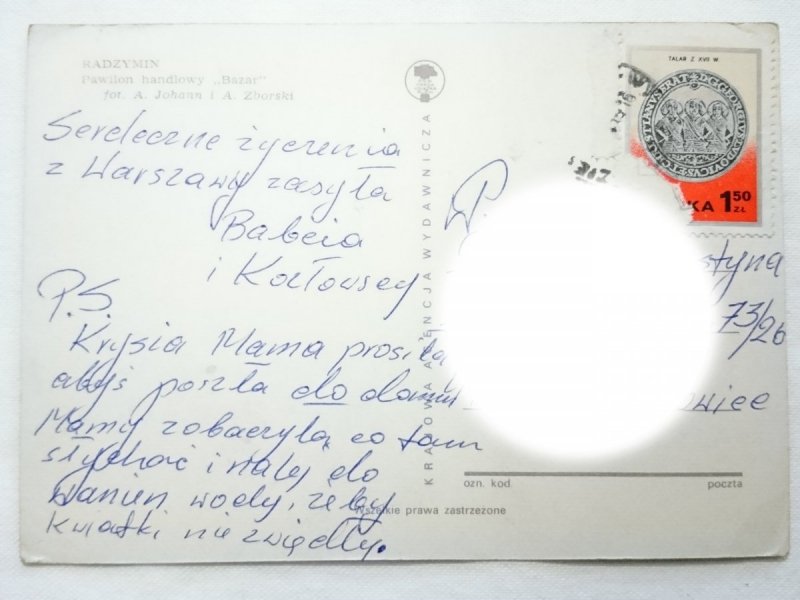 RADZYMIN
Pawilon handlowy „Bazar"
fot. A. Johann i A. Zborski
Serdeczne życzenia
z Warszawy zasyła
Babcia
i Kozłowscy
P.S.
Krysia Mama prosiła
abyś poszła do domu
Mamy zobaczyła co tam
słychać i nalej do
wanien wody, żeby
kwiatki nie zwiędły.
KRAJOWA AGENCJA WYDAWNICZA
TALAR Z XVII W.
KA 1 50 ZŁ
P.
styna
73/26
owiec
ozn. kod
poczta
Wszelkie prawa zastrzeżone